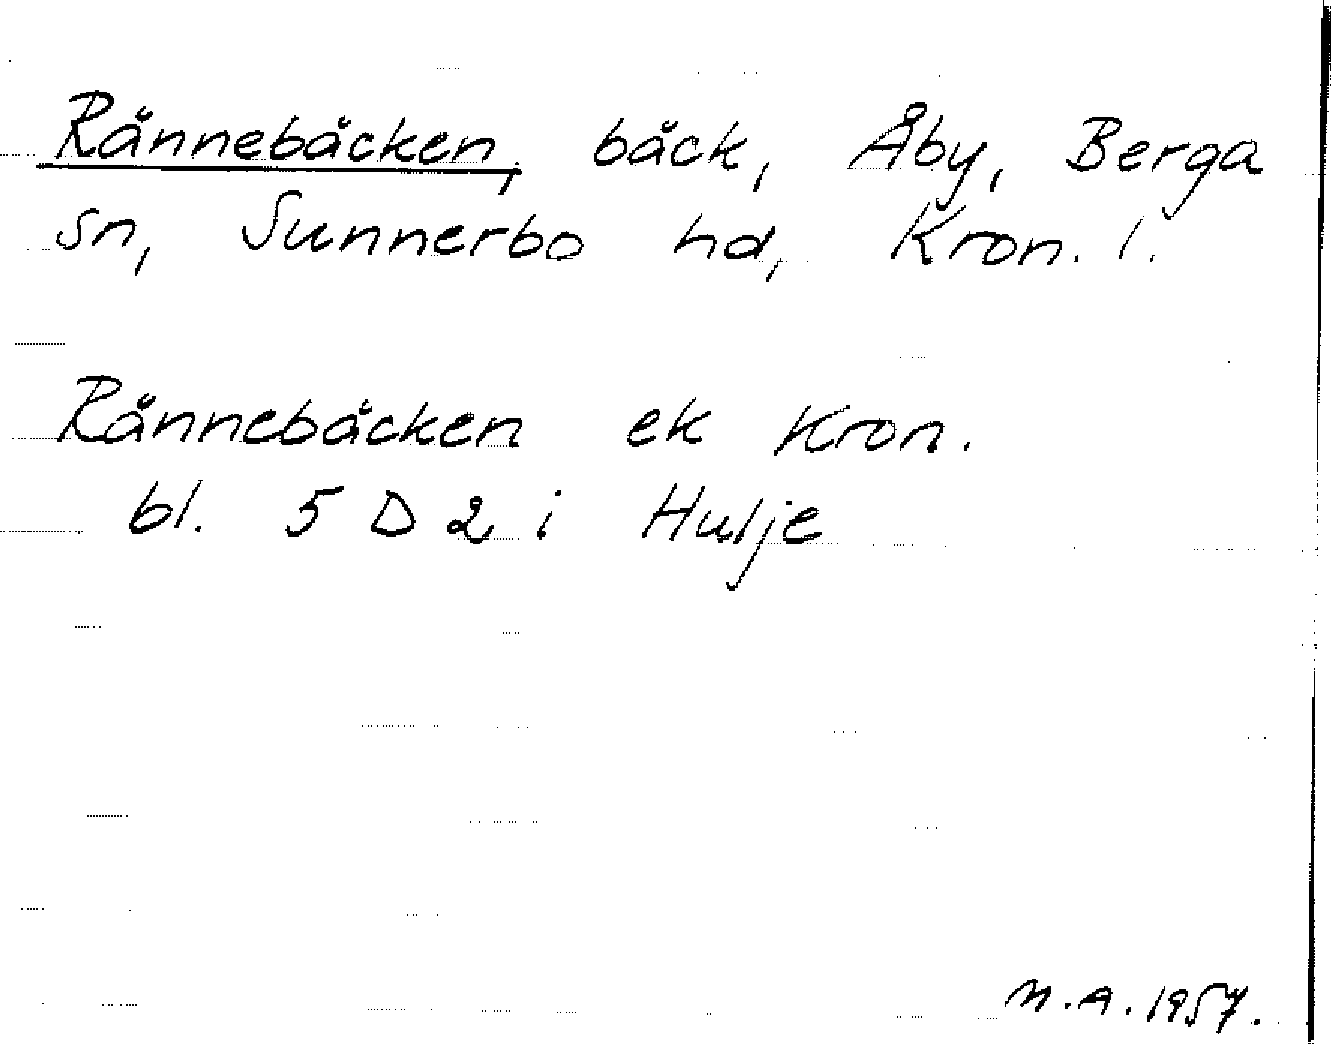 Rännebäcken, bäck, Åby, Berga
sn, Sunnerbo hd, Kron. l.
Rännebäcken ek Kron.
bl. 5 D 2 i Hulje
M.A. 1957.